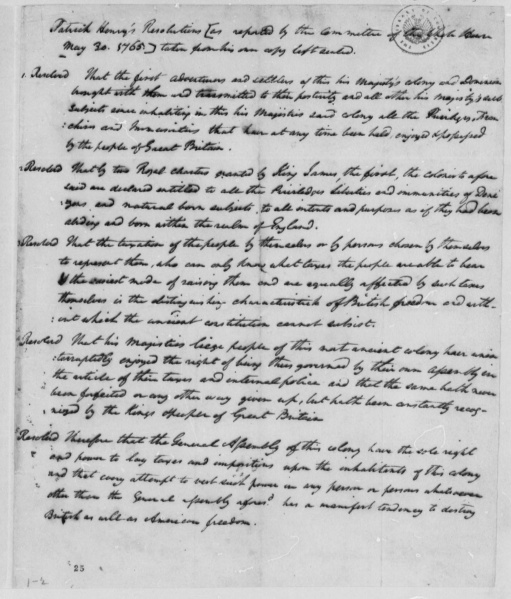 Patrick Henry's Resolutions [as reported by the Committee of the Whole House
May 30. 1765.] taken from his own copy left sealed.
1. Resolved That the first adventurers and settlers of this his Majesty's colony and Dominion
brought with them and transmitted to their posterity and all other his majesty's
subjects since inhabiting in this his Majesties said colony all the Priviledges, Fran
:chises and Immunities that have at any time been held, enjoyed & possessed
by the people of Great Britain.
Resolved That by two Royal charters granted by King James, the first, the colonists afore
said are declared entitled to all the Priviledges liberties and immunities of Deni
zens and natural born subjects, to all intents and purposes as if they had been
abiding and born within the realm of England.
Resolved That the taxation of the people by themselves or by persons chosen by themselves
to represent them, who can only know what taxes the people are able to bear
the easiest mode of raising them and are equally affected by such taxes
themselves is the distinguishing characteristick of British freedom and with-
:out which the ancient constitution cannot subsist.
Resolved That his Majesties liege people of this most ancient colony have unin
:terruptedly enjoyed the right of being thus governed by their own assembly in
the article of their taxes and internal police and that the same hath never
been forfeited or any other way given up, but hath been constantly recog-
nized by the Kings & people of Great Britain
Resolved therefore that the General Assembly of this colony have the sole right
and power to lay taxes and impositions upon the inhabitants of this colony
and that every attempt to vest such power in any person or persons whatsoever
other than the General assembly aforesd. has a manifest tendency to destroy
British as well as American freedom.
25
1-2